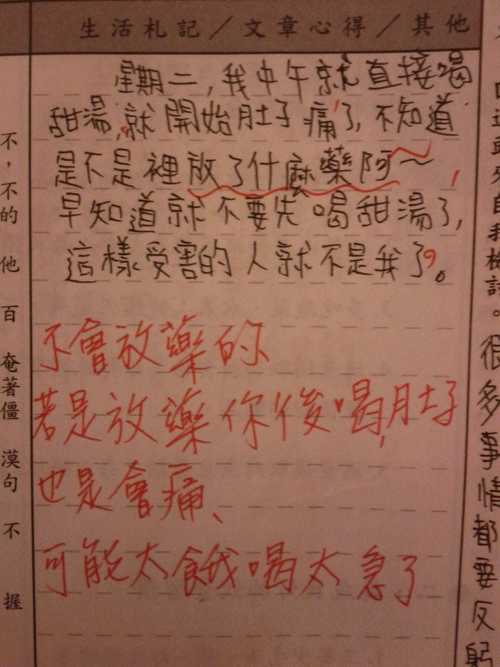 生活札記／文章心得／其他
星期二，我中午就直接喝
甜湯，就開始肚子痛了，不知道
是不是裡放了什麼藥阿～
早知道就不要先喝甜湯了，
這樣受害的人就不是我了。
不會放藥的、
若是放藥你後喝，肚子
也是會痛、
可能太餓喝太急了
不，不的 他 百 奄著僵 漠句 不 握
自我檢討。
很多事情都要反躬